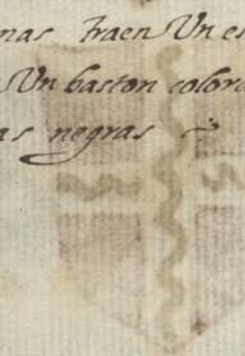 nas traen Un es
Un baston colora
as negras